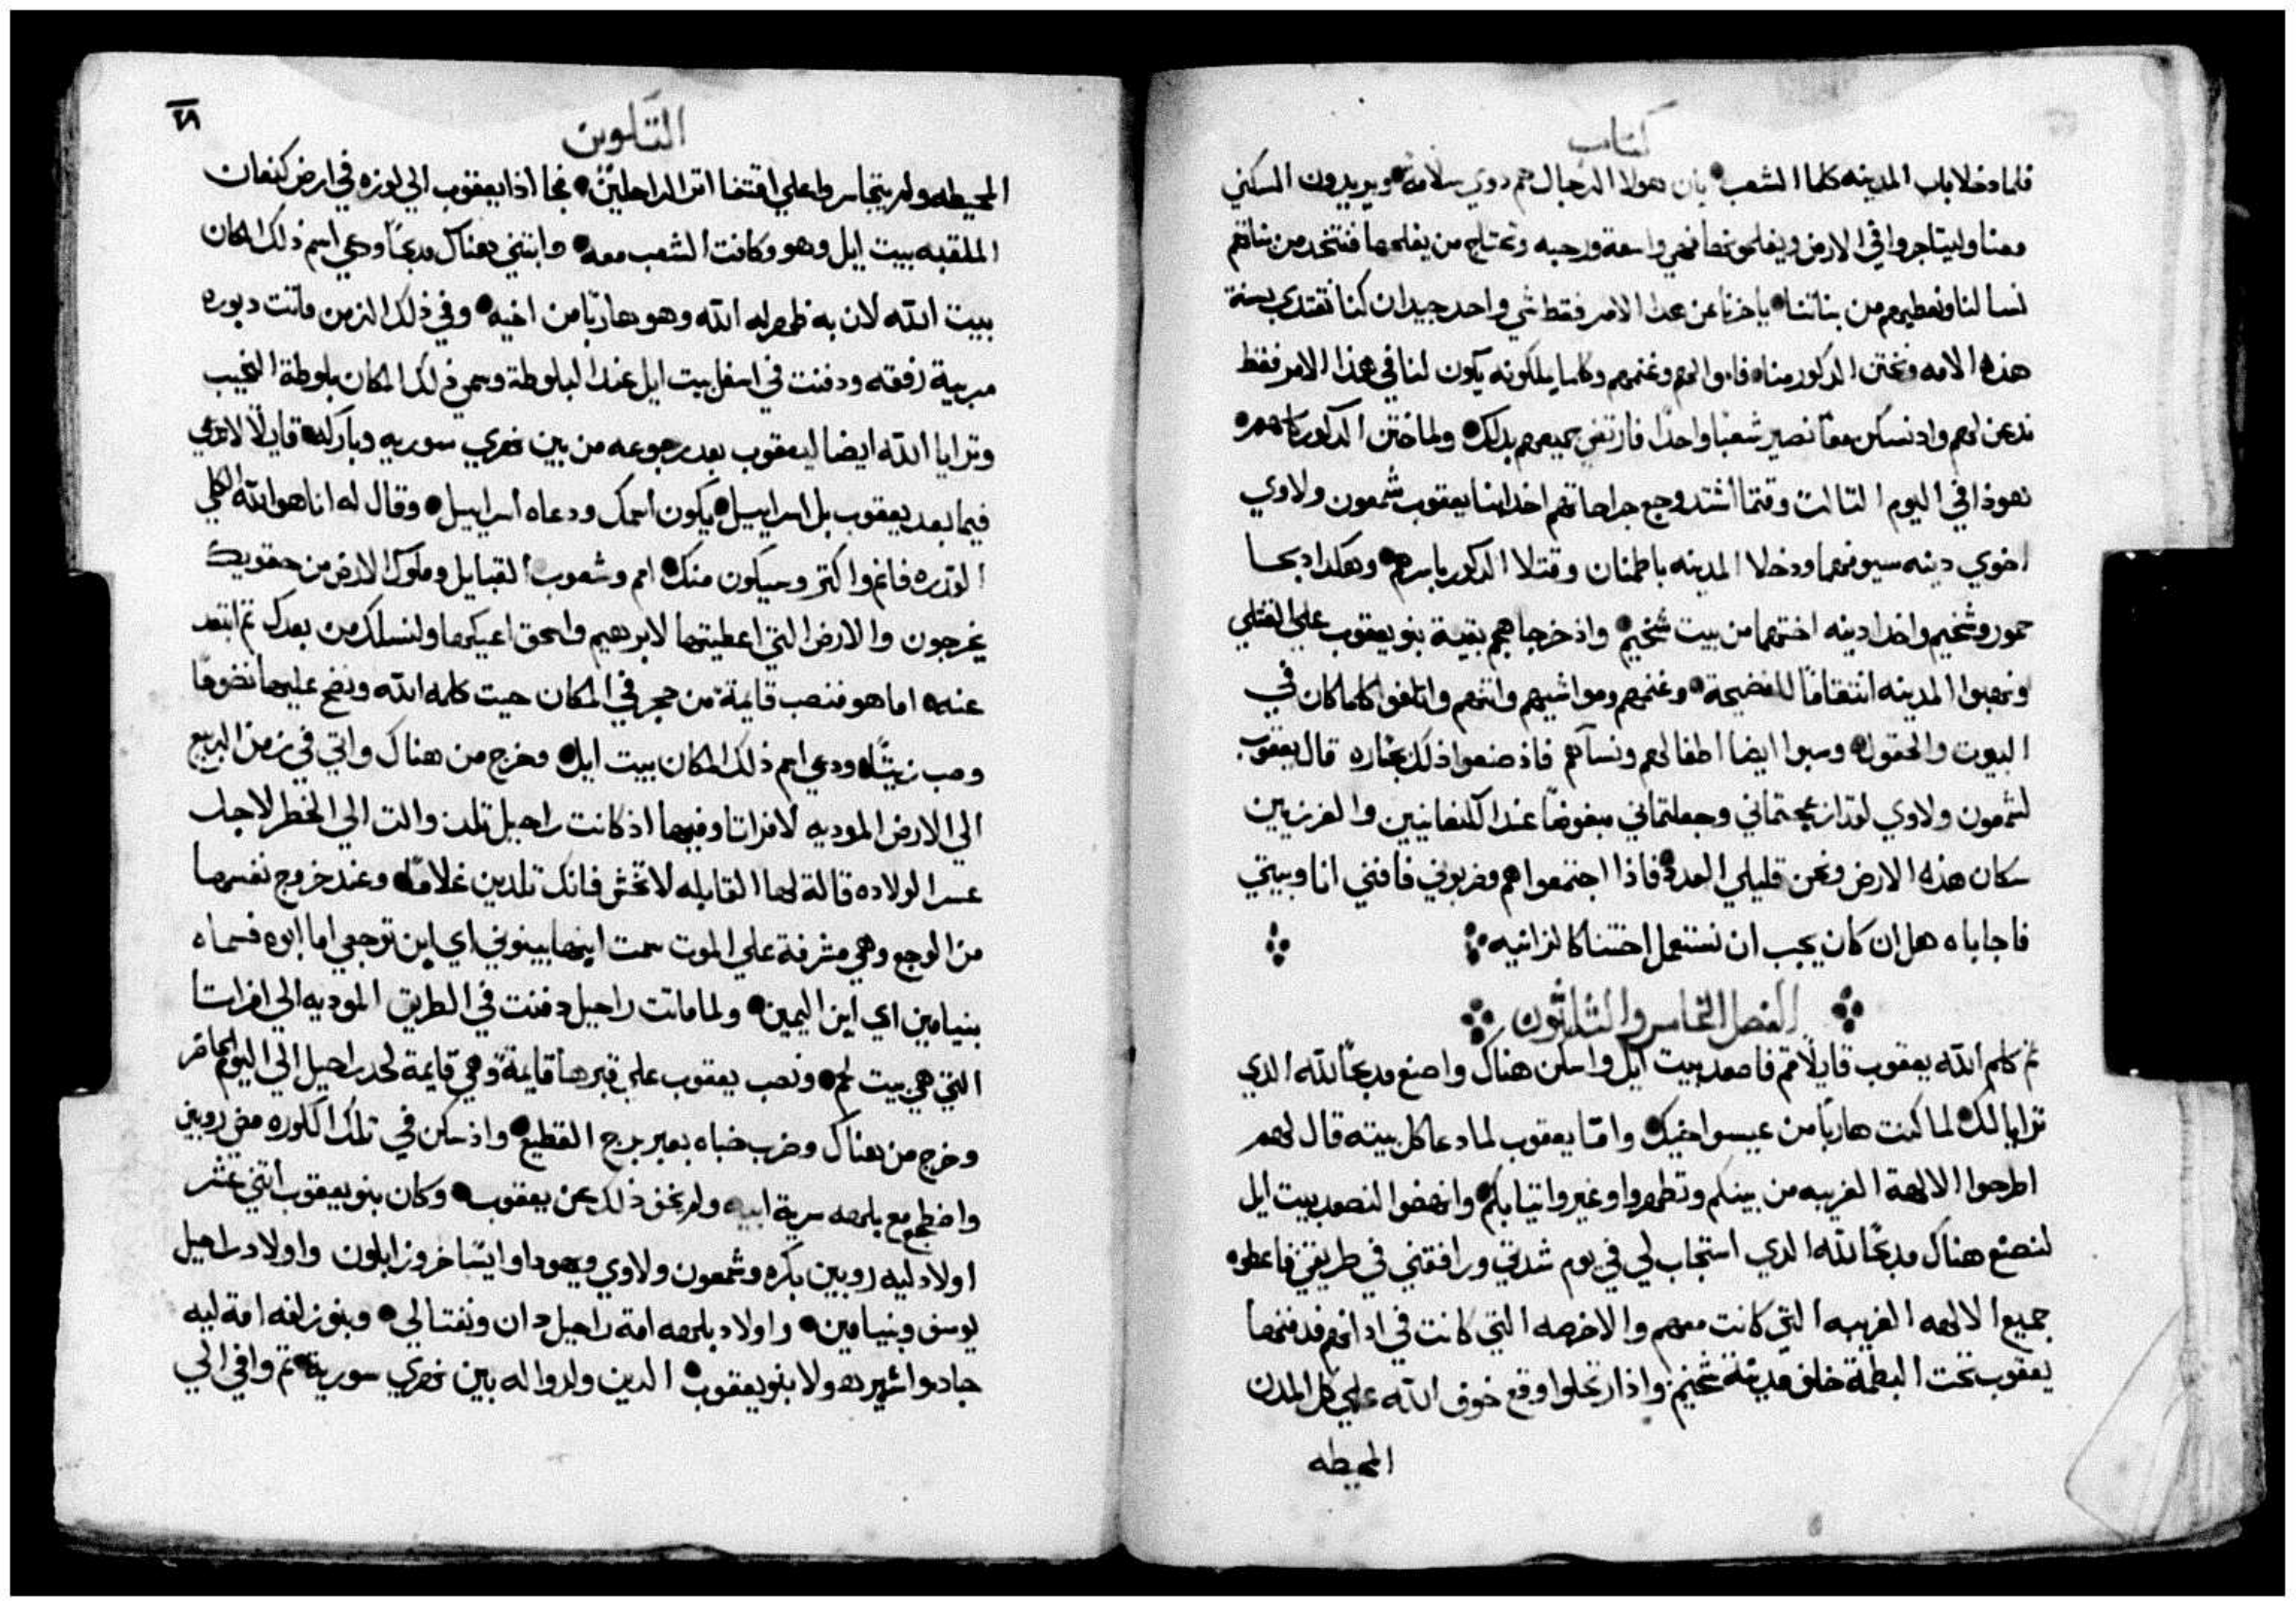 كتاب
فلما دخلا باب المدينه كلما الشعب بان هولا الرجال هم دوي سلامه ويريدون السكني
معنا وليتاجروا في الارض ويفلحونها فهي واسعة ورحبه وتحتاج من يفلحها فنتخد من بناتهم
نسا لنا ونعطيهم من بناتنا ياخرنا عن هدا الامر فقط شي واحد جيد ان كنا نقتدي بسنة
هذه الامه ونختن الدكور منا فاموالهم وغنمهم وكلما يملكونه يكون لنا في هذا الامر فقط
ندعن لهم واد نسكن معا نصير شعبا واحدا فارتضي جميعهم بدلك ولما ختن الدكور كلهم
نهوذا في اليوم التالت وقتما اشتد وجع جراحاتهم اخد ابنا يعقوب شمعون ولاوي
اخوي دينه سيوفهما ودخلا المدينه باطمنان وقتلا الدكور باسرهم وهكدا دبحا
حمور وشخيم واخدا دينه اختهما من بيت شخيم واذ خرجا هجم بقية بنو يعقوب علي القتلي
ونهبوا المدينه انتقاما للفضيحة وغنمهم ومواشيهم واتنهم واتلفوا كلما كان في
البيوت والحقول وسبوا ايضا اطفالهم ونسآهم فاذ صنعوا ذلك بجساره قال يعقوب
لشمعون ولاوي لقد ازعجتماني وجعلتماني مبغوضا عند الكنعانيين والفرزيين
سكان هذه الارض ونحن قليلي العدد فاذا اجتمعوا هم وضربوني فافني انا وبيتي
فاجاباه هل ان كان يجب ان نستعمل اختنا كالزانيه
الفصل الخامس والتلاتون
تم كلم الله يعقوب قايلا قم فاصعد بيت ايل واسكن هناك واصنع مدبحا لله الدي
ترايا لك لما كنت هاربا من عيسو اخيك واما يعقوب لما دعا كل بيته قال لهم
اطرحوا الالهة الغريبه من بينكم وتطهروا وغيروا تيابكم وانهضوا لنصعد بيت ايل
لنصنع هناك مدبحا لله الدي استجاب لي في يوم شدتي ورافقني في طريقي فاعطوه
جميع الالهه الغريبه التي كانت معهم والاخرصه التي كانت في ادانهم فدفنها
يعقوب تحت البطمة خلف مدينة شخيم واذ ارتحلوا وقع خوف الله علي كل المدن
المحيطه
التكوين
٢٨
المحيطه ولم يتجاسروا علي اقتفا اتر الراحلين فجا اذا يعقوب الي لوزه في ارض كنعان
الملقبه بيت ايل وهو وكافت الشعب معه وابتني هناك مدبحا ودعي اسم ذلك المكان
بيت الله لان به ظهر له الله وهو هاربا من اخيه وفي ذلك الزمن ماتت دبوره
مربية رفقه ودفنت في اسفل بيت ايل عند البلوطة وسمي ذلك المكان بلوطة النحيب
وترايا الله ايضا ليعقوب بعد رجوعه من بين نهري سوريه وباركه قايلا لا تدعي
فيما بعد يعقوب بل اسراييل يكون اسمك ودعاه اسراييل وقال له انا هو الله الكلي
القدره فانم واكتر وسيكون منك امم وشعوب القبايل وملوك الارض من حقويك
يخرجون والارض التي اعطيتها لابرهيم واسحق اعيكها ولنسلك من بعدك تم ابتعد
عنه اما هو فنصب قايمة من حجر في المكان حيت كلمه الله ونضح عليها نضوحا
وصب زيتا ودعي اسم ذلك المكان بيت ايل وخرج من هناك واتي في زمن الربيع
الي الارض الموديه لافراتا وفيها اذ كانت راحيل تلد والت الي الخطر لاجل
عسر الولاده قالة لها القابله لا تخش فانك تلدين غلاما وعند خروج نفسها
من الوجع وهي مشرفة علي الموت سمت ابنها بينوني اي ابن توجعي اما ابوه فسماه
بنيامين اي ابن اليمين ولما ماتت راحيل دفنت في الطريق الموديه الي افراتا
التي هي بيت لحم ونصب يعقوب علي قبرها قايمة وهي قايمة لحد راحيل الي اليوم الحاضر
وخرج من هناك وضرب خباه بعبر برج القطيع واذ سكن في تلك الكوره مضي روبين
واضطجع مع بلهه سرية ابيه ولم يخف ذلك عن يعقوب وكان بنو يعقوب اتني عشر
اولاد ليه روبين بكره وشمعون ولاوي ويهودا وايساخر وزابلون واولاد راحيل
يوسف وبنيامين واولاد بلهه امة راحيل دان ونفتالي وبنو زلفه امة ليه
جاد واشير هولا بنو يعقوب الدين ولدوا له بين نهري سورية تم وافي الي